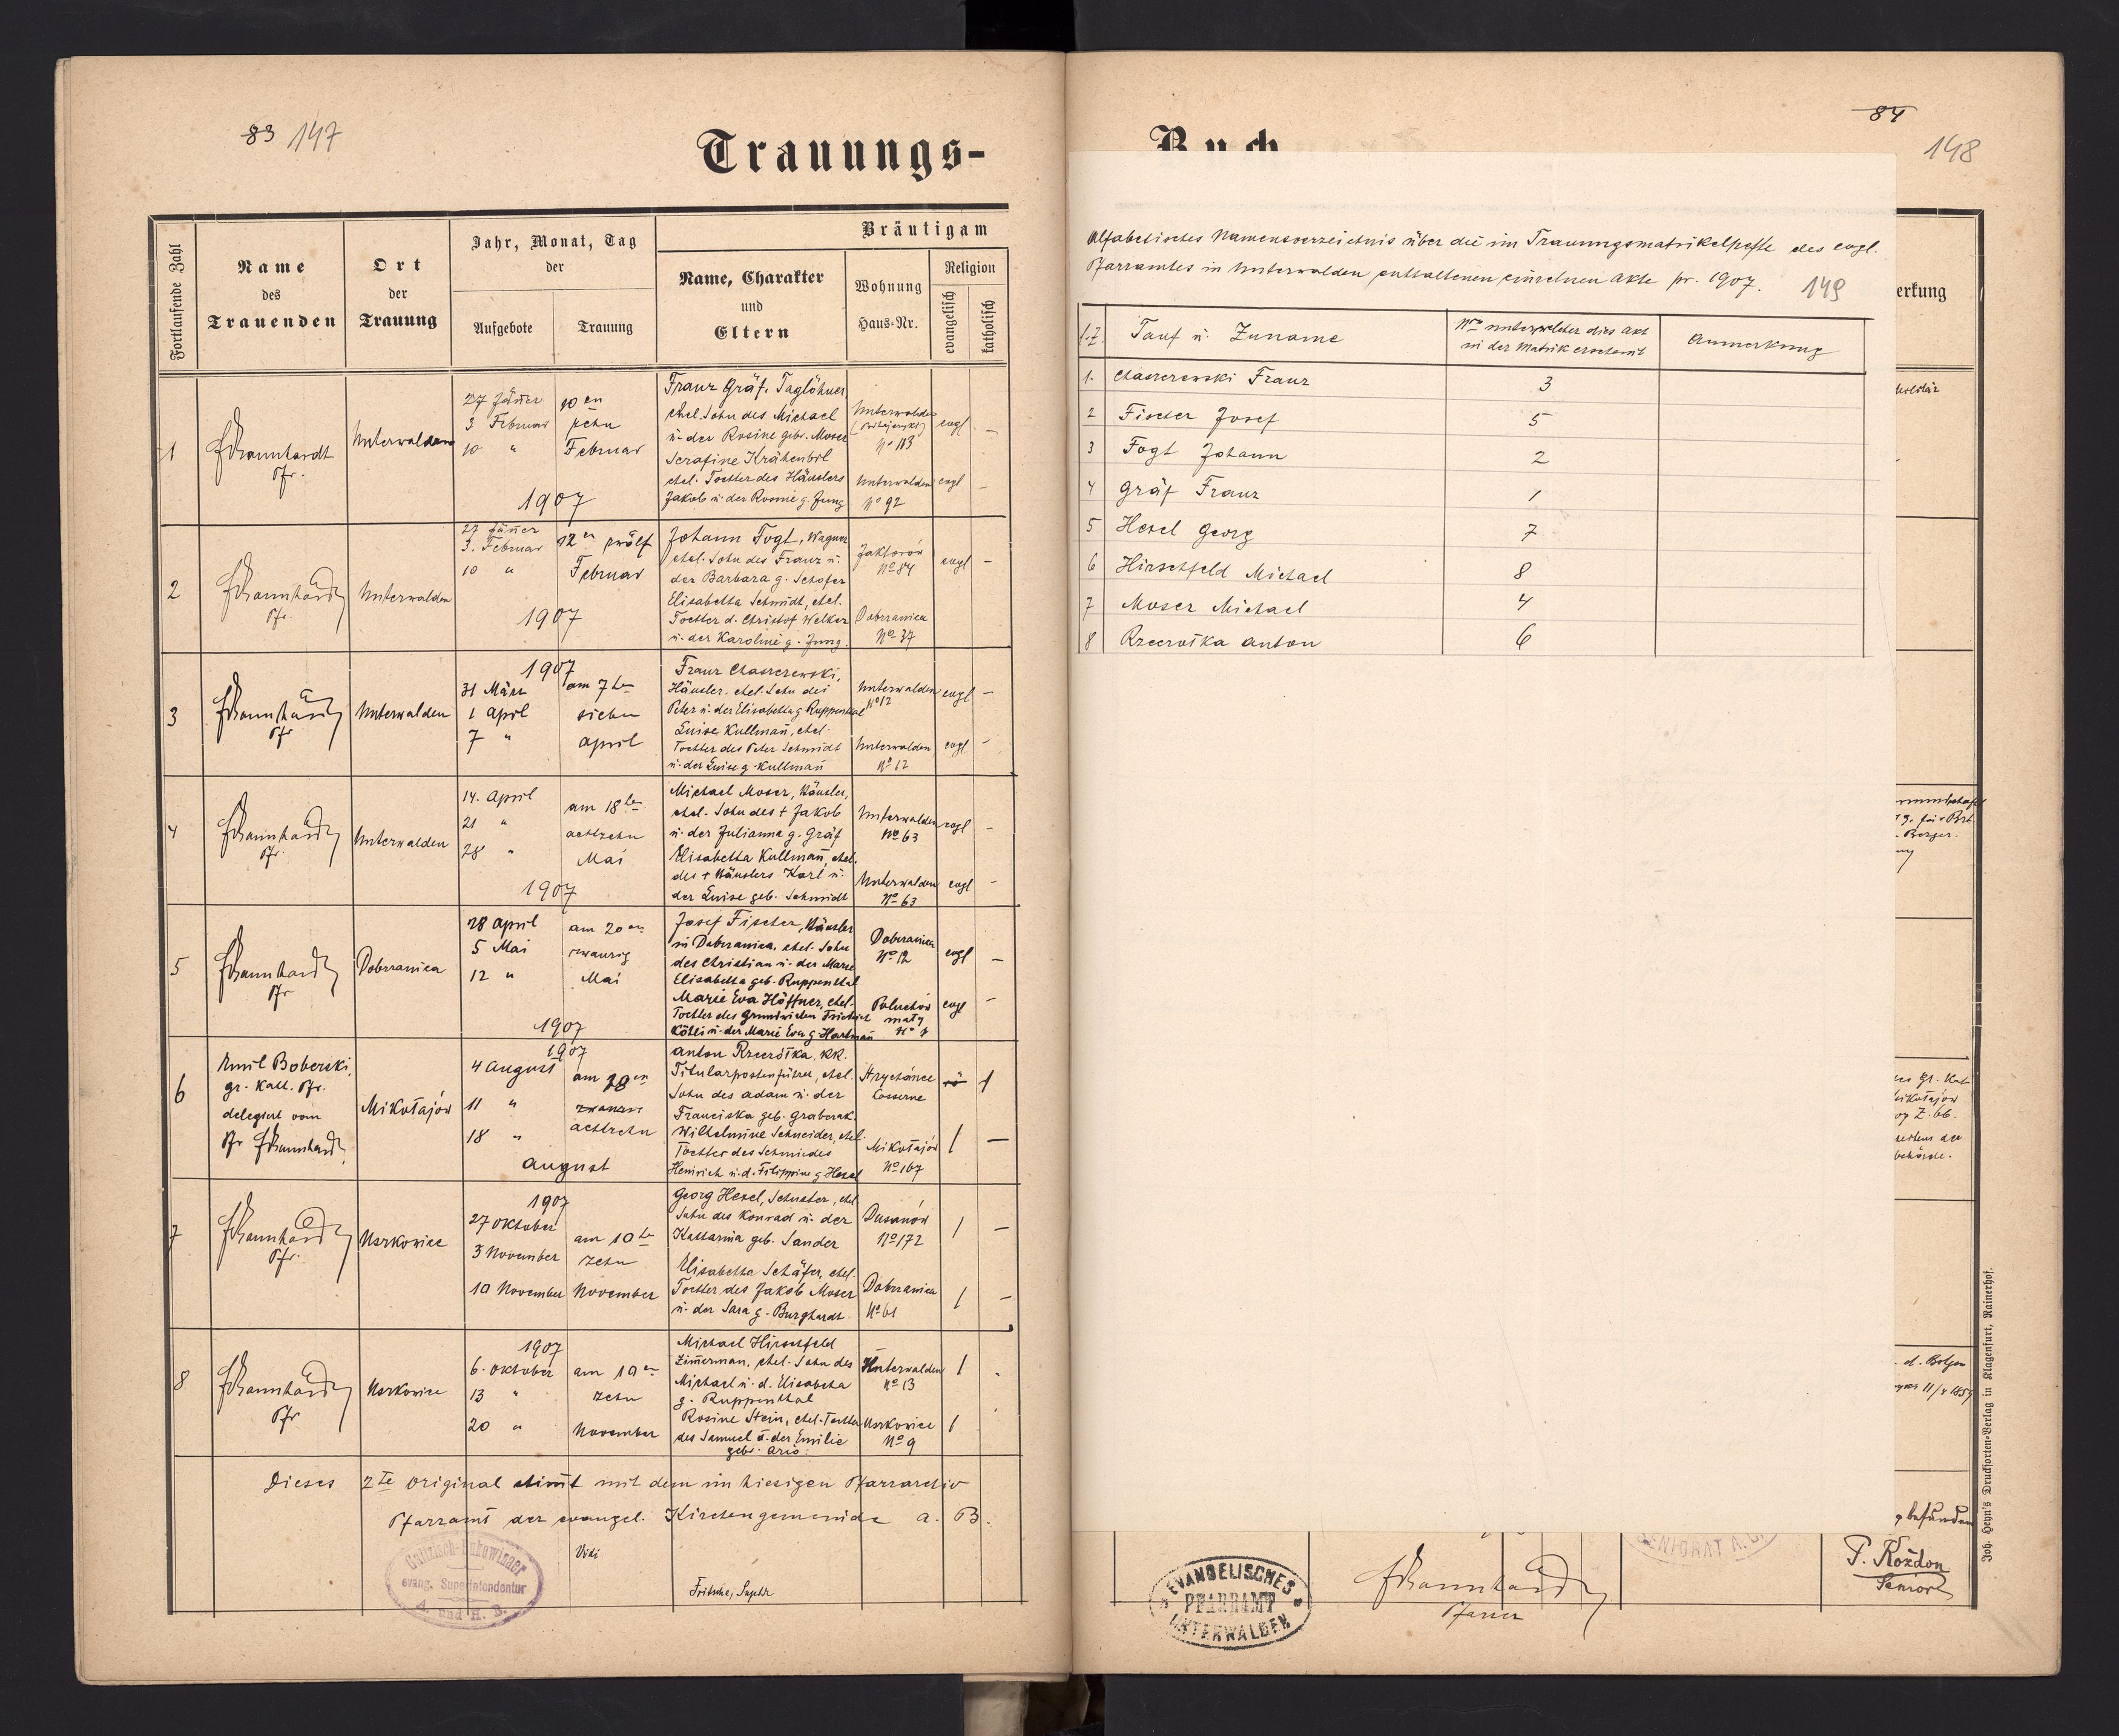 83 147
Trauungs-
Fortlaufende Zahl
Name
des
Trauenden
Ort
der
Trauung
Jahr, Monat, Tag
der
Aufgebote
Trauung
Bräutigam
Name, Charakter
und
Eltern
Wohnung
Haus-Nr.
Religion
evangelisch
katholisch
1
Pfr.
Unterwalden
27 Jäner
3 Februar
10 "
10 en
zehn
Februar
1907
Franz Gräf, Taglöhner,
ehel. Sohn des Michael
u. der Rosine geb. Moser
Serafine Krähenbil
ehel. Tochter des Häuslers
Jakob u. der Rosine g. Jung
Unterwalden
No 113
evgl –
Unterwalden
No 92
evgl –
2
Pfr.
Unterwalden
27 Jäner
3. Februar
10 "
12 en zwölf
Februar
1907
Johann Fogt, Wagner
ehel. Sohn des Franz u.
der Barbara g. Schofer
Elisabetha Schmidt, ehel.
Tochter d. Christof Welker
u. der Karoline g. Jung.
Jaktorów
No 84
evgl –
Dobrzanica
No 37
3
Pfr
Unterwalden
1907
31 März
1 April
7 "
am 7 ten
sieben
April
Franz Chaszczewski,
Häusler, ehel. Sohn des
Peter u. der Elisabetha g Ruppenthal
Luise Kullmañ, ehel.
Tochter des Peter Schmidt
u. der Luise g. Kullmañ
Unterwalden
No 12
evgl –
Unterwalden
No 12
evgl. –
4
Pfr.
Unterwalden
14. April
21 "
28 "
am 18 ten
achtzehn
Mai
1907
Michael Moser, Häusler,
ehel. Sohn des + Jakob
u. der Julianna g. Gräf
Elisabetha Kullmañ, ehel.
des + Häuslers Karl u.
der Luise geb. Schmidt
Unterwalden
No 63
evgl –
Unterwalden
No 63
evgl –
5
Pfr
Dobrzanica
28 April
5 Mai
12 "
am 20 en
zwanzig
Mai
1907
Josef Fischer, Häusler
in Dobrzanica, ehel. Sohn
des Christian u. der Marie
Elisabetha geb. Ruppenthal
Marie Eva Höffner, ehel.
Tochter des Grundwirten Friedrich
Köhli u. der Marie Eva g Hartmañ
Dobrzanica
No 12
evgl –
Poluchów
mały
evgl –
6
Emil Boberski,
gr. kath. Pfr.
delegiert vom
Pfr
Mikołajów
1907
4 August
11 "
18 "
am 18 en
achtzehn
August
Anton Rzeczótka, KK.
Titularpostenführer, ehel.
Sohn des Adam u. der
Franciska geb. Graborak.
Wilhelmine Schneider, ehel.
Tochter des Schmiedes
Heinrich u. d. Filippine g Hexel
Mikołajów
No 167
7
Pfr.
Uszkowice
1907
27 Oktober
3 November
10 November
am 10 te
zehn
November
Georg Hexel, Schuster, ehel
Sohn des Konrad u. der
Katharina geb. Sander
Elisabetha Schäfer, ehel.
Tochter des Jakob Moser
u. der Sara g. Burghardt
Dusanów
No 172
Dobrzanica
No 61
8
Pfr
Uszkowice
1907
6. Oktober
13 "
20 "
am 10 en
zehn
November
Michael Hirschfeld
Zim̄erman, ehel. Sohn des
Michael u. d. Elisabetha
g. Ruppenthal
Rosine Stein, ehel. Tochter
des Samuel u. der Emilie
geb. Aris.
Unterwalden
No 13
Uszkowice
No 9
Dieses 2te Original stim̄t mit dem im hiesigen Pfarrarchiv
Pfarramt der evangel. Kirchengemeinde A. B.
Galizisch-Bukowinaer
evang. Superintendentur
A. und H. B.
Vidi
Fritsche, Suptdt
Buch
84
148
Alfabetisches Namensverzeichnis über die im Trauungsmatrikelhefte des evgl.
Pfarramtes in Unterwalden enthaltenen einzelnen Akte pr. 1907.
149
l. Z. Tauf u. Zuname
Nro unter welcher dies Akt
in der Matrik erscheint
Anmerkung
1. Chaszczewski Franz 3
2 Fischer Josef 5
3 Fogt Johann 2
4 Gräf Franz 1
5 Hexel Georg 7
6 Hirschfeld Michael 8
7 Moser Michael 4
8 Rzeczotka Anton 6
erkung
. Berger.
es gr. Kat
ikołajów
Z. 66.
behörde.
. d. Bolzen
befunden
SENIORAT A.
P. Kożdon
Senior
EVANGELISCHES
PFARRAMT
UNTERWALDEN
Pfarrer
Joh. Heyn's Drucksorten-Verlag in Klagenfurt, Rainerhof.